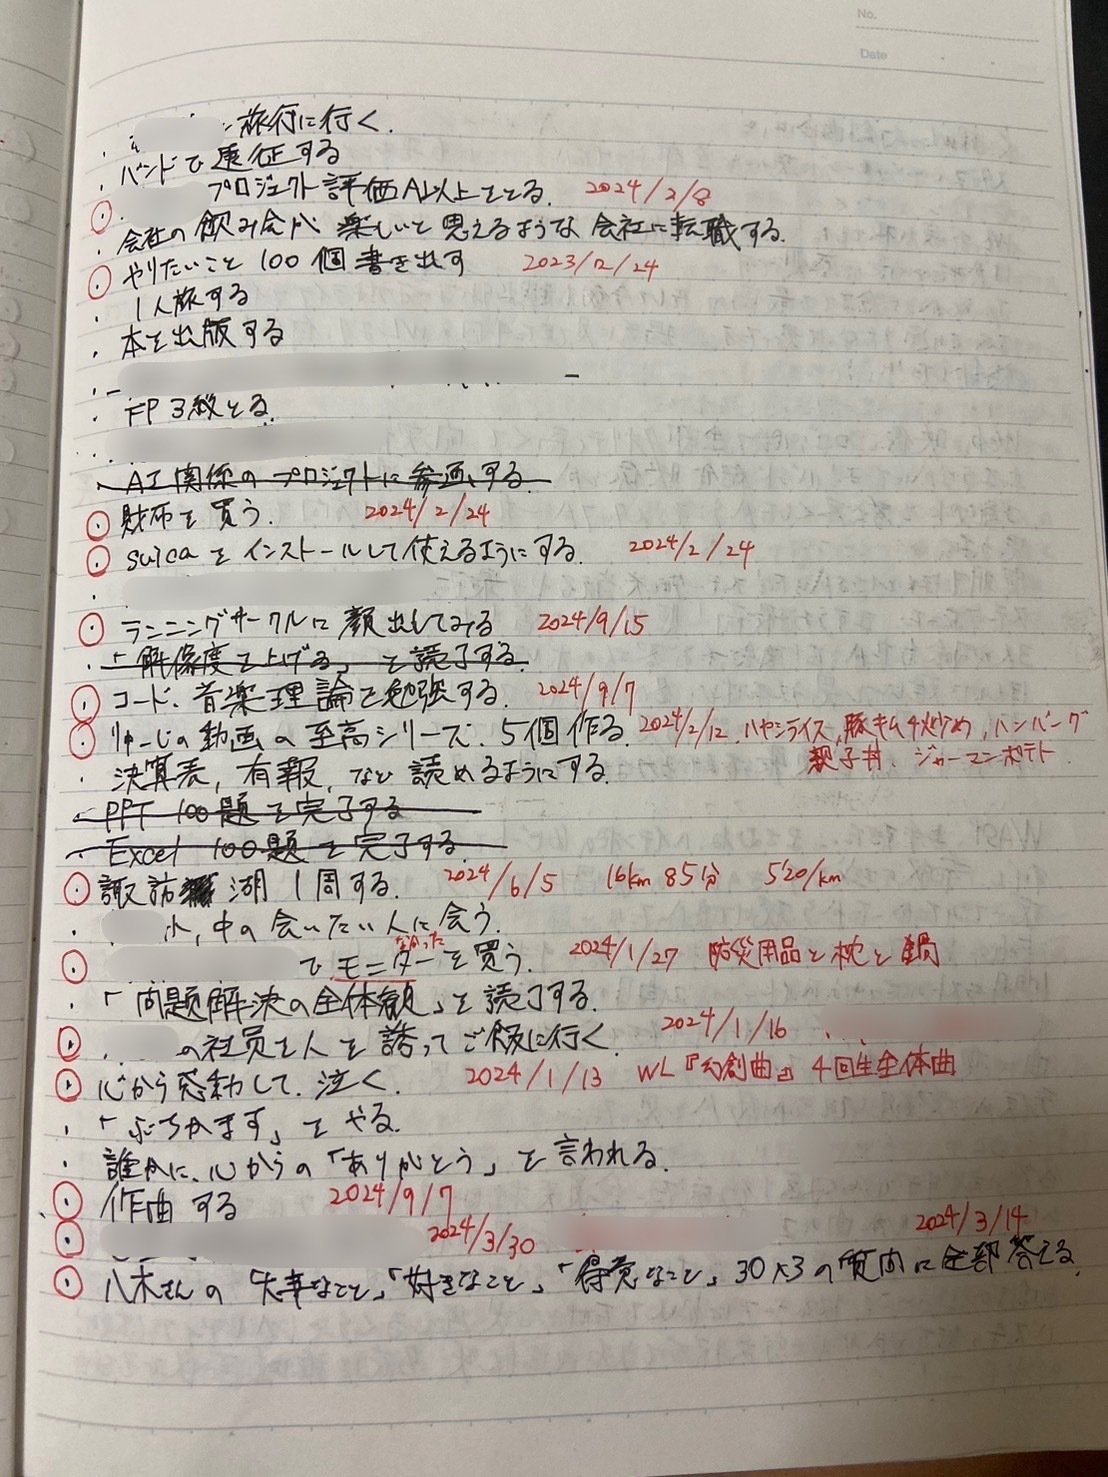 No.
Date
旅行に行く.
・バンドで遠征する
プロジェクト評価A以上をとる. 2024/2/8
・会社の飲み会が楽しいと思えるような会社に転職する.
・やりたいこと100個書き出す 2023/12/24
・1人旅する
・本を出版する
・FP3級とる.
・AI関係のプロジェクトに参画する.
・財布を買う. 2024/2/24
・suicaをインストールして使えるようにする. 2024/2/24
・ランニングサークルに顔出してみる 2024/9/15
・「解像度を上げる」を読了する.
・コード、音楽理論を勉強する. 2024/9/7
・りゅーじの動画の至高シリーズ. 5個作る. 2024/2/12. ハヤシライス, 豚キムチ炒め, ハンバーグ
親子丼、ジャーマンポテト
・決算表, 有報, など読めるようにする.
・PPT 100題を完了する
・Excel 100題を完了する.
・諏訪湖1周する. 2024/6/5 16km 85分 5'20/km
小, 中の会いたい人に会う.
なかった
でモニターを買う. 2024/1/27 防災用品と枕と鍋
・「問題解決の全体観」を読了する.
の社員を人を誘ってご飯に行く. 2024/1/16
・心から感動して、泣く. 2024/1/13 WL『幻創曲』4回生全体曲
・「ぶちかます」をやる.
・誰かに、心からの「ありがとう」を言われる.
・作曲する 2024/9/7
2024/3/30 2024/3/14
・八木さんの「大事なこと」「好きなこと」「得意なこと」30×3の質問に全部答える.